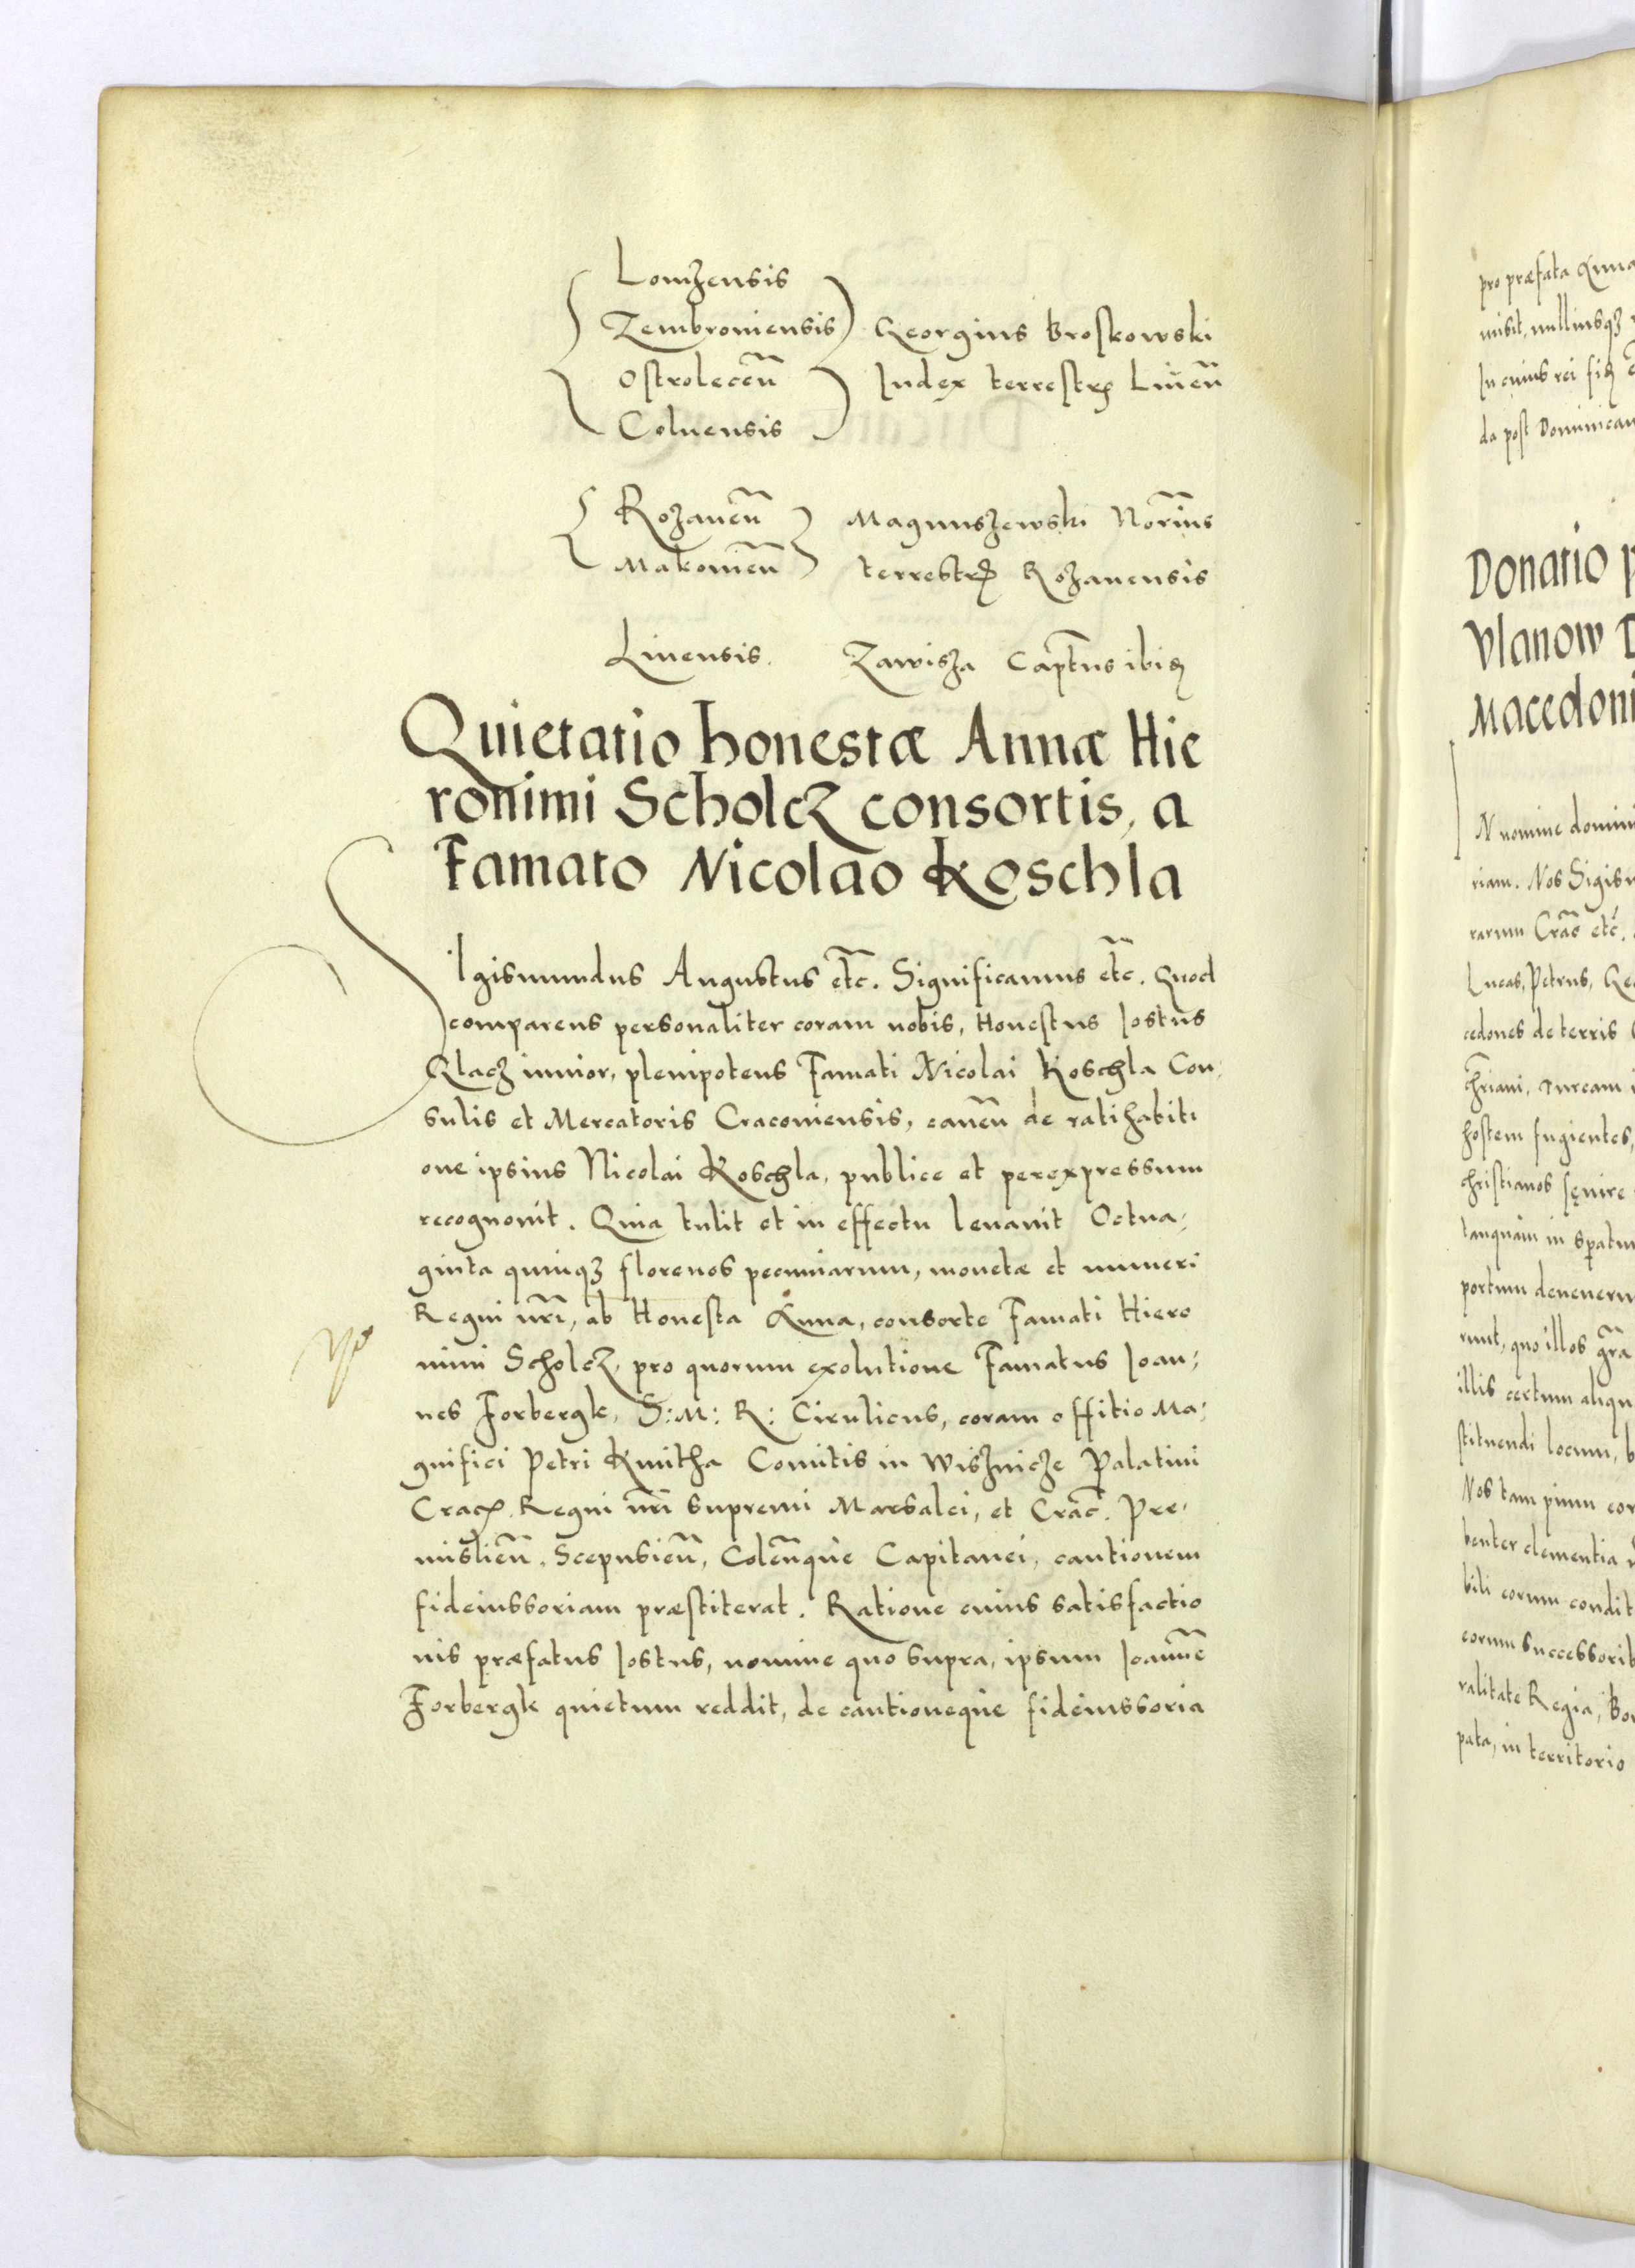 Lomzensis
Zembroviensis Georgius Broskowski
Ostrolecen̄ Iudex terrestrꝭ Liuen̄
Colnensis
Rozanen̄ Magnuszewski Nor̄ius
Makouien̄ terrestrꝭ Rozanensis
Liuensis. Zawisza Capt̄nus ibiꝫ
Quietatio honestæ Annæ Hie
ronimi Scholcz consortis, a
Famato Nicolao Koschla
SIgismundus Augustus etc̄. Significamus etc̄. Quod
comparens personaliter coram nobis, Honestus Iostus
Glacz iunior, plenipotens Famati Nicolai Koschla Con,
sulis et Mercatoris Cracoviensis, cauen̄ de ratihabiti
one ipsius Nicolai Koschla, publice et perexpressum
recognouit. Quia tulit et in effectu leuauit Octua,
ginta quinqꝫ florenos pecuniarum, monetæ et numeri
Regni nr̄i, ab Honesta Anna, consorte Famati Hiero
nimi Scholcz, pro quorum exolutione Famatus Ioan,
nes Forbergk, S: M: R: Cirulicus, coram offitio Ma,
gnifici Petri Kmitha Comitis in Wisznicze Palatini
Cracꝭ. Regni nr̄i supremi Marsalci, et Crac̄. Pre,
mislien̄. Scepusien̄, Colen̄que Capitanei, cautionem
fideiussoriam præstiterat. Ratione cuius satisfactio
nis præfatus Iostus, nomine quo supra, ipsum Ioann̄e
Forbergk quietum reddit, de cautioneque fideiussoria
pro præfata Anna
misit, nulliusqꝫ
In cuius rei fiꝫ
da post Dominicam
Donatio
Vlanow
Macedoni
IN nomine domini
riam. Nos Sigis
rarum Crac̄ etc̄.
Lucas, Petrus, Ge
cedones de terris
chr̄iani, Turcam
hostem fugientes,
christianos sęuire
tanquam in speratum
portum deuenerun
runt, quo illos gr̄a
illis certum aliqu
stituendi locum, b
Nos tam pium cor
benter clementia
bili eorum condit
eorum successorib
ralitate Regia, Bo
pata, in territorio